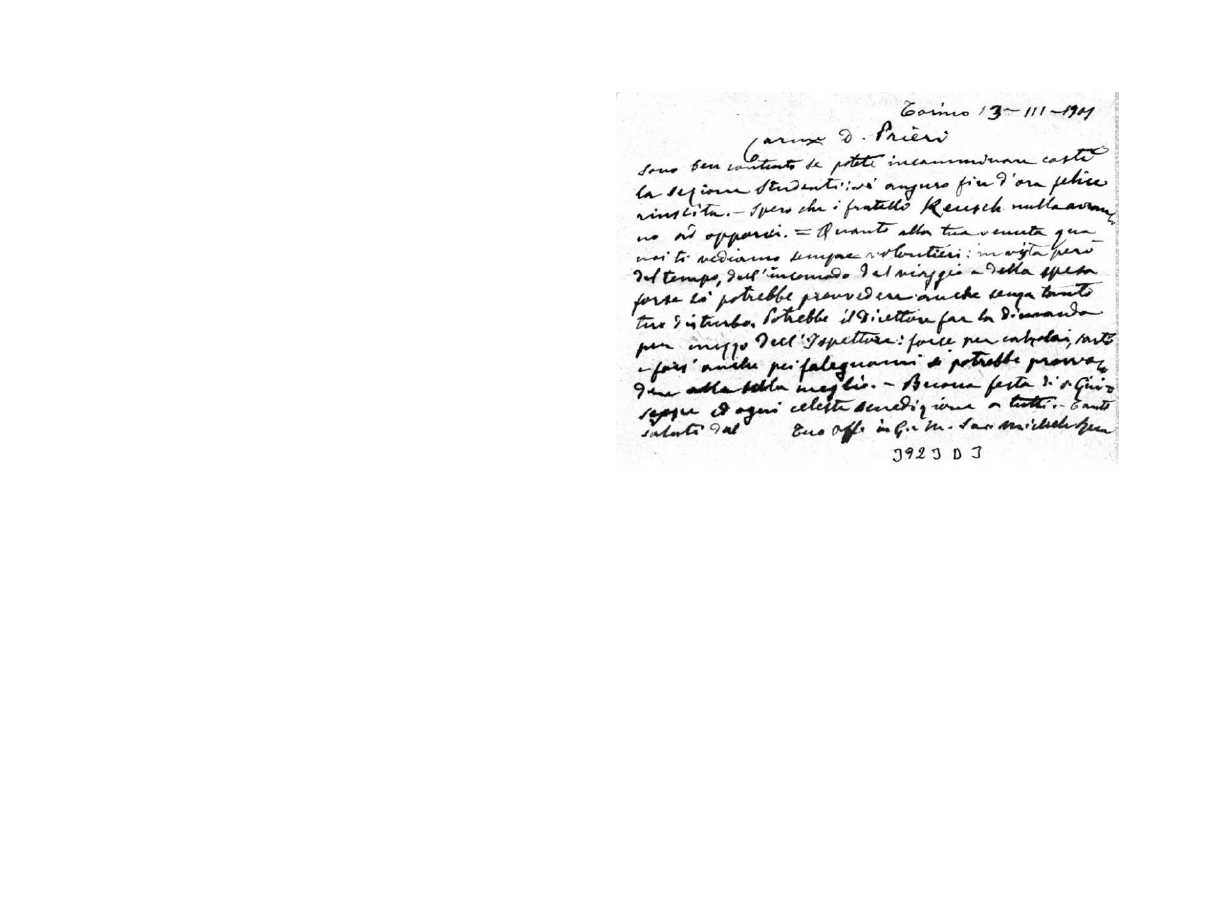 Torino 13-III-1901
Car.mo D. Prieri
sono ben contento se potete incamminare costì
la sezione studenti: vi auguro fin d'ora felice
riuscita. - Spero che i fratelli Reusch nulla avran-
no ad opporvi. = Quanto alla tua venuta qua
noi ti vediamo sempre volontieri: in vista però
del tempo, dell'incomodo del viaggio e della spesa
forse si potrebbe provvedere anche senza tanto
tuo disturbo. Potrebbe il Direttore far la dimanda
per mezzo dell'Ispettore: forse per calzolai, sarti
e fors' anche pei falegnami si potrebbe provve-
dere alla meglio. - Buona festa di S. Giu-
seppe ed ogni celeste benedizione a tutti. - Tanti
saluti dal Tuo Aff. in G. e M. Sac. Michele Rua
3923 D 3